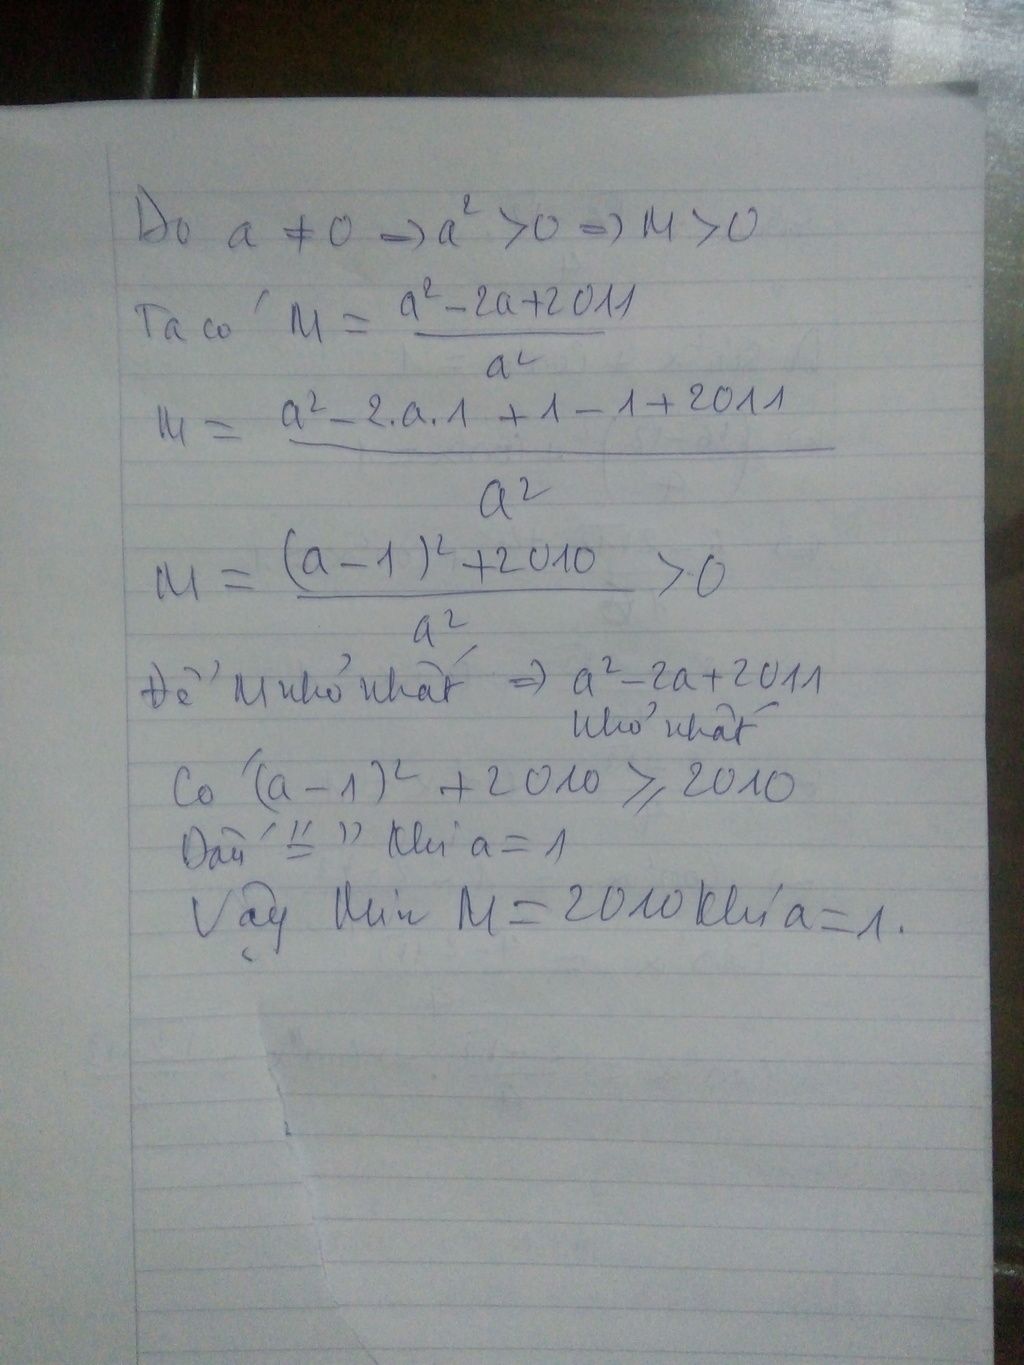 Do a ≠ 0 => a² > 0 => M > 0
Ta có M = (a² - 2a + 2011) / a²
M = (a² - 2.a.1 + 1 - 1 + 2011) / a²
M = ((a - 1)² + 2010) / a² > 0
Để M nhỏ nhất => a² - 2a + 2011
nhỏ nhất
Có (a - 1)² + 2010 ≥ 2010
Dấu "=" khi a = 1
Vậy Min M = 2010 khi a = 1.